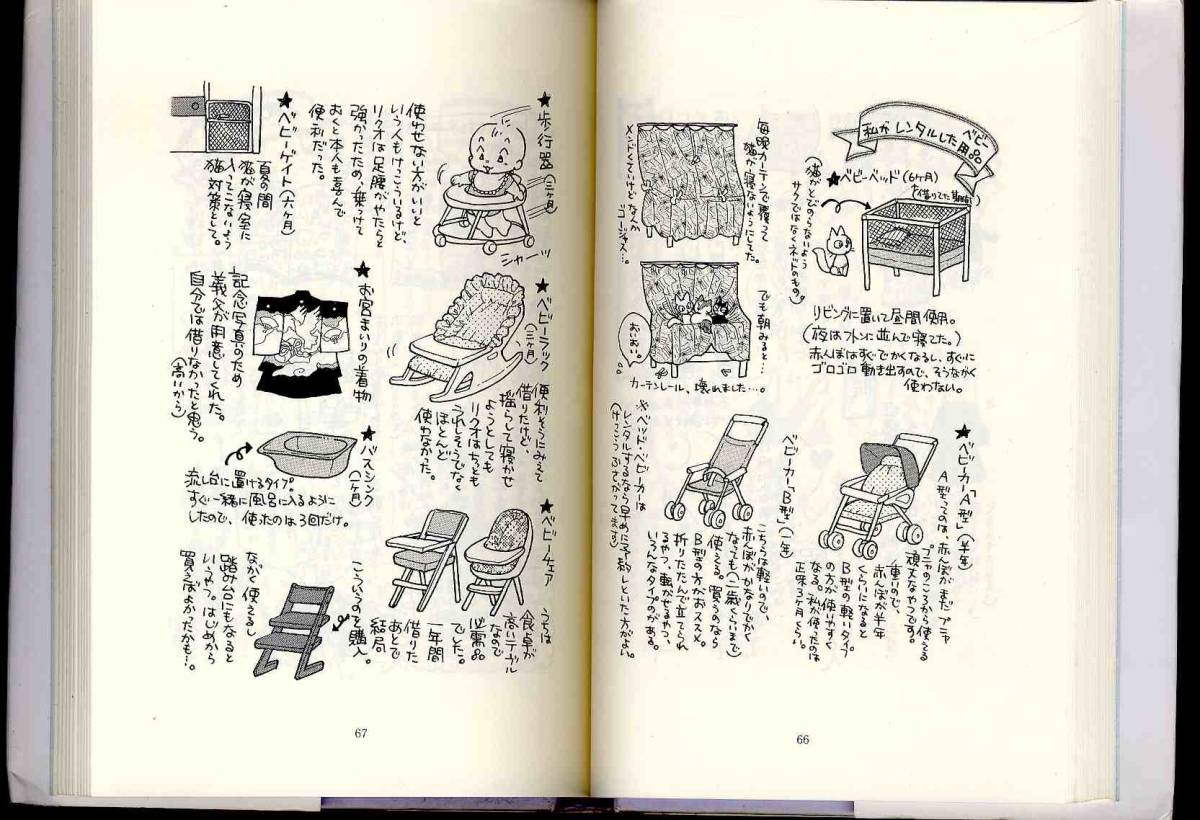 私がレンタルしたベビー用品
★ベビーベッド(6ヶ月)
猫がとびのらないよう
サクではなくネットのもの。
リビングに置いて昼間使用。
(夜はフトンに並んで寝てた。)
赤んぼはすぐでかくなるし、すぐに
ゴロゴロ動き出すので、そうながく
使わない。
毎晩カーテンで覆って
猫が寝ないようにしてた。
メンドくさいけどなんか
ゴージャス…。
でも朝みると…
おいおい。
カーテンレール、壊れました…。
★ベビーカー「A型」(半年)
A型ってのは、赤んぼがまだプニャ
プニャのころから使える
頑丈なやつです。
重いので、
赤んぼが半年
くらいになると
B型の軽いタイプ
の方が使いやすく
なる。私が使ったのは
正味3ヶ月くらい。
ベビーカー「B型」(一年)
こちらは軽いので、
赤んぼがかなりでかく
なっても(二歳くらいまで)
使える。買うのなら
B型の方がおススメ。
折りたたんで立てられ
るやつ、軽がるやつ、
いろんなタイプのがある。
※ベッド・ベビーカーは
レンタルするなら早めに予約しといた方がよい。
(けっこうふさがってます)
66
★歩行器(三ヶ月)
シャーッ
使わせない方がいいと
いう人もけっこういるけど、
リクオは足腰がやたらと
強かったため、乗っけて
おくと本人も喜んで
便利だった。
★ベビーゲイト(六ヶ月)
夏の間
猫が寝室に
入ってこないよう
猫対策として。
★ベビーラック
(三ヶ月)
便利そうにみえて
借りたけど、
揺らして寝かせ
ようとしても
リクオはちっとも
うれしそうでなく
ほとんど
使わなかった。
★お宮まいりの着物
記念写真のため
義父が用意してくれた。
自分では借りなかったと思う。
(高いから)
★バスシンク
(一ヶ月)
流し台に置けるタイプ。
すぐ一緒に風呂に入るように
したので、使ったのは3回だけ。
★ベビーチェア
うちは
食卓が
高いテーブル
なので
必需品
でした。
一年間
借りた
あとで
結局
こういうのを購入。
ながく使えるし
踏み台にもなると
いうやつ。はじめから
買えばよかったかも…。
67